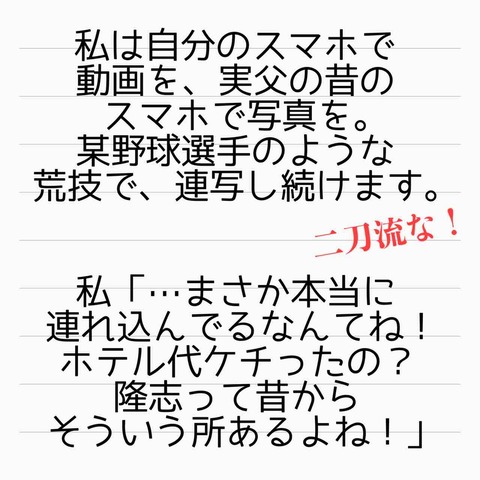 私は自分のスマホで
動画を、実父の昔の
スマホで写真を。
某野球選手のような
荒技で、連写し続けます。
二刀流な！
私「…まさか本当に
連れ込んでるなんてね！
ホテル代ケチったの？
隆志って昔から
そういう所あるよね！」